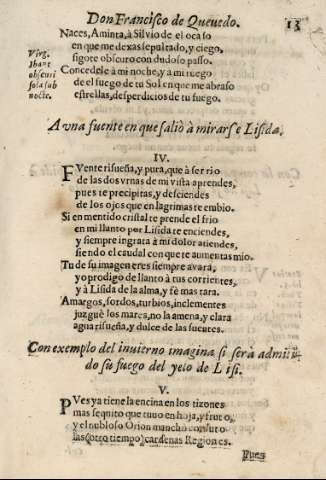 Don Francisco de Quevedo.
13
Naces, Aminta, à Silvio de el ocaso
en que me dexas sepultado, y ciego,
sigote obscuro con dudoso passo.
Concedele à mi noche, y a mi ruego
de el fuego de tu Sol en que me abraso
estrellas, desperdicios de tu fuego.
Virg.
Ibant
obscuri
sola sub
nocte.
A vna fuente en que saliò à mirarse Lisida.
IV.
FVente risueña, y pura, que à ser rio
de las dos vrnas de mi vista aprendes,
pues te precipitas, y desciendes
de los ojos que en lagrimas te embio.
Si en mentido cristal te prende el frio
en mi llanto por Lisida te enciendes,
y siempre ingrata à mi dolor atiendes,
siendo el caudal con que te aumentas mio.
Tu de su imagen eres siempre avara,
yo prodigo de llanto à tus corrientes,
y à Lisida de la alma, y fè mas rara.
Amargos, sordos, turbios, inclementes
juzguè los mares, no la amena, y clara
agua risueña, y dulce de las fuentes.
Con exemplo del invierno imagina si serà admiti-
do su fuego del yelo de Lisi.
V.
PVes ya tiene la encina en los tizones
mas sequito que tuuo en hoja, y fruto,
y el nubloso Orion manchò con luto
las (otro tiempo) cardenas Regiones.
Pues